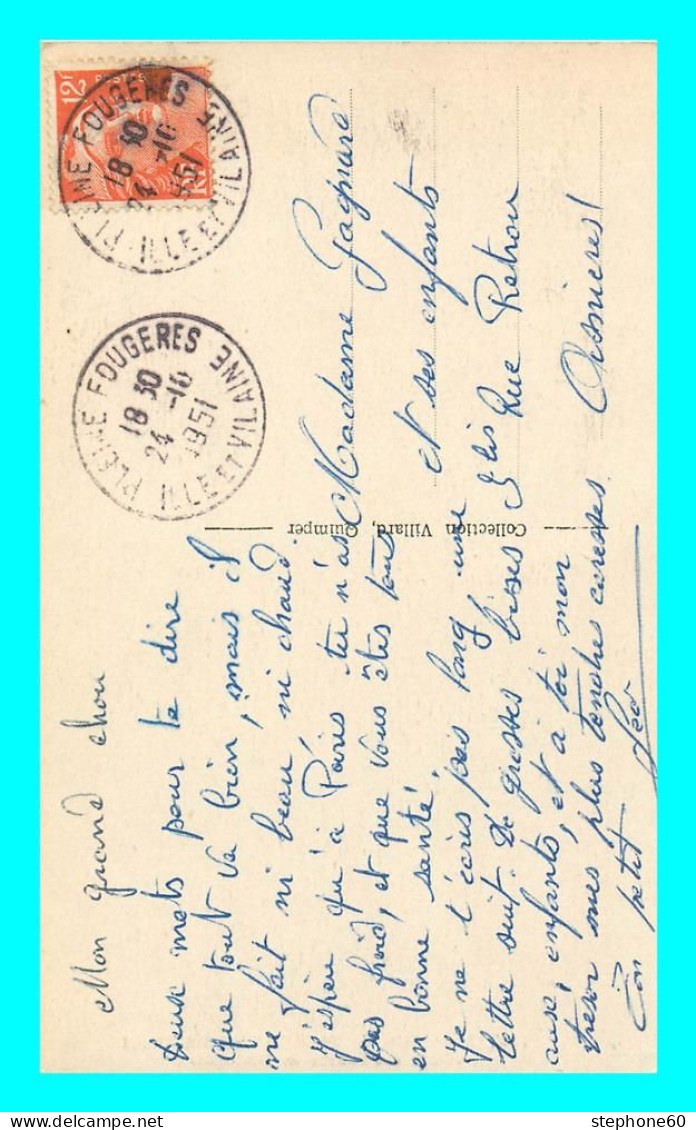 Mon grand chou
Deux mots pour te dire
que tout va bien, mais il
ne fait ni beau, ni chaud.
J'espère qu'à Paris tu n'as
pas froid, et que vous êtes tous
en bonne santé.
Je ne t'écris pas long, une
lettre suit. De grosses bises
aux enfants, et à toi mon
trésor mes plus tendres caresses.
Ton petit Léo
Collection Villard, Quimper
Madame Gagnard
et ses enfants
3 bis Rue Retrou
Asnières
12F
POSTES
PLEINE FOUGERES
18 30
24 -10
1951
ILLE ET VILAINE
PLEINE FOUGERES
18 30
24 -10
1951
ILLE ET VILAINE
stephone60